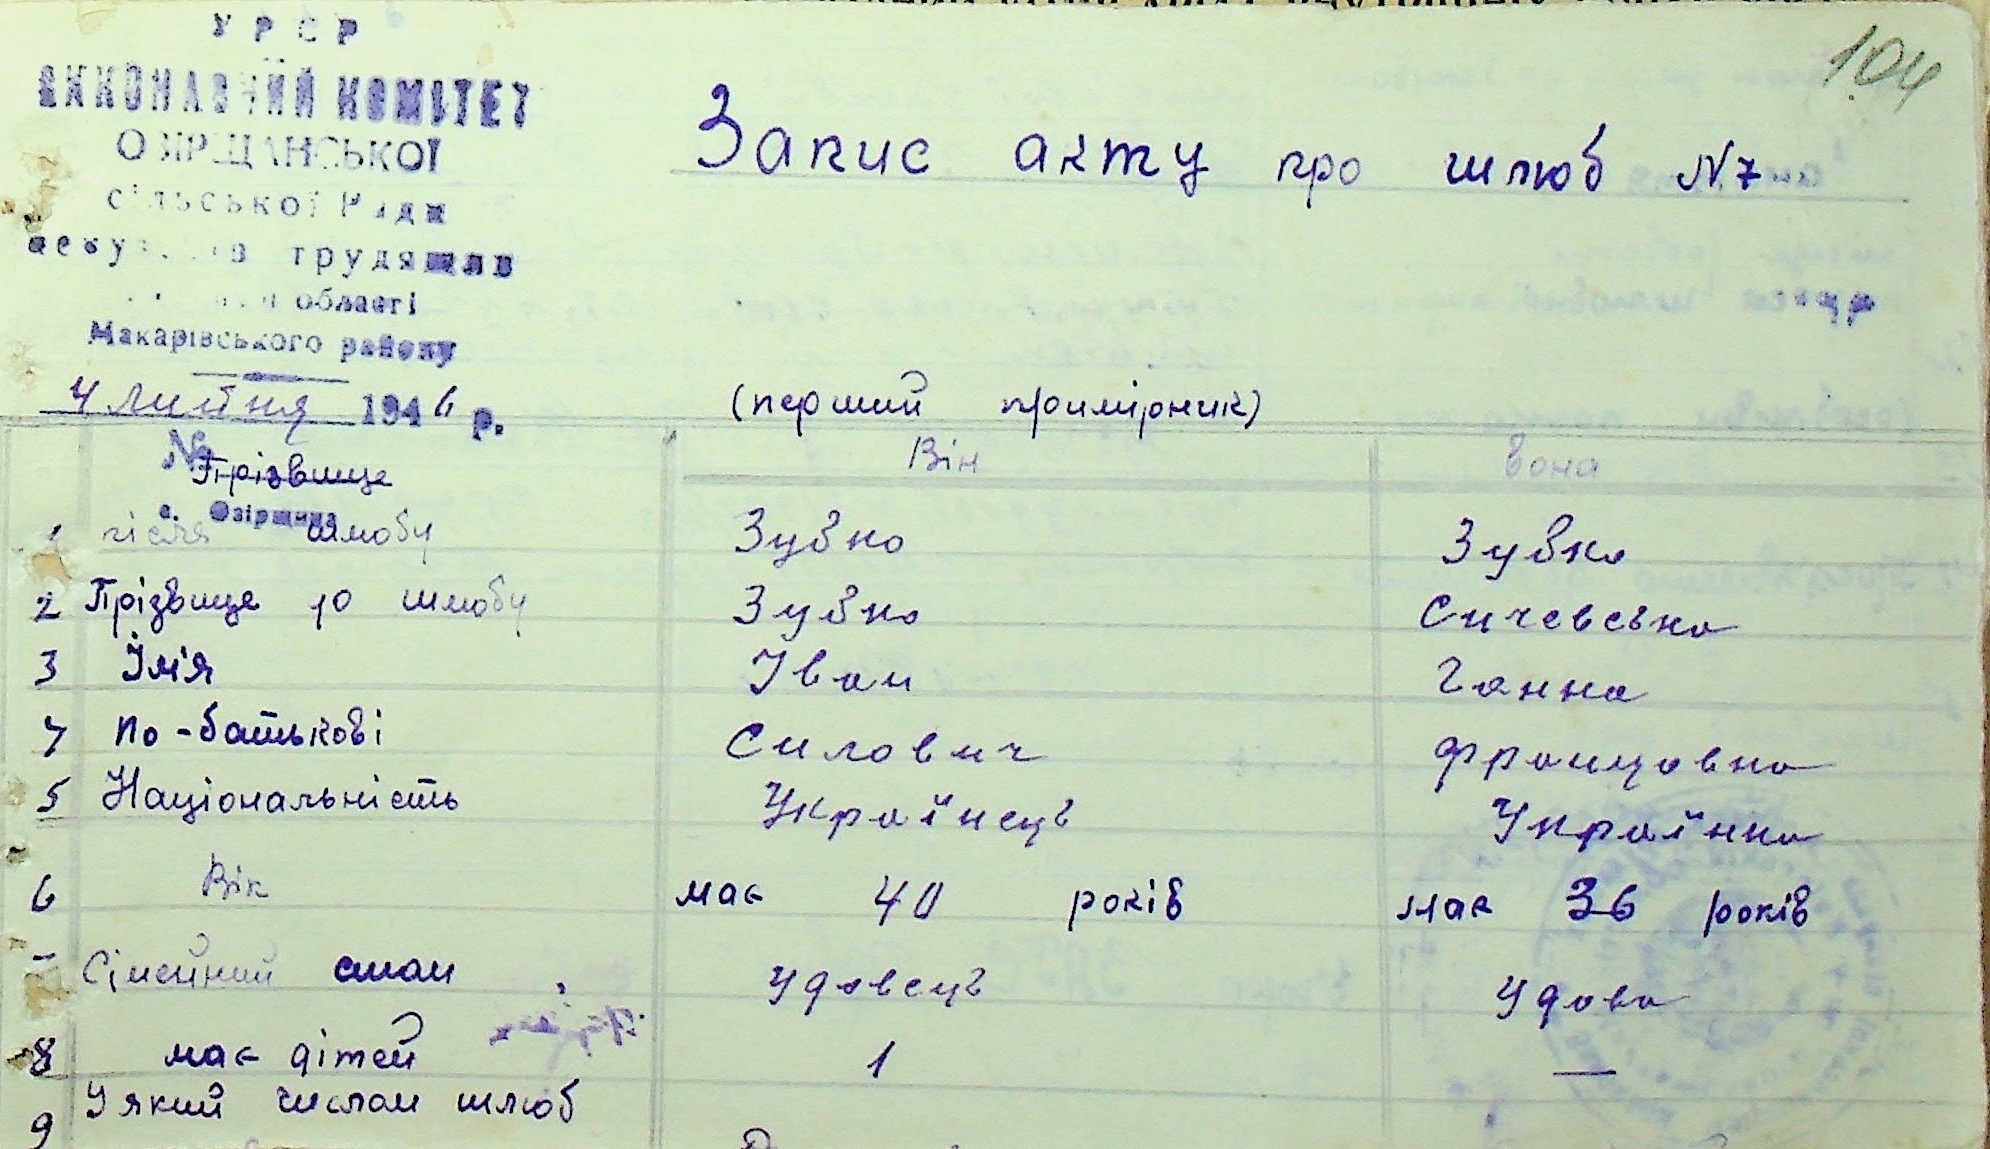 104
УРСР
ВИКОНАВЧИЙ КОМІТЕТ
ОЗІРЩАНСЬКОЇ
сільської Ради
депутатів трудящих
області
Макарівського району
4 липня 1946 р.
№
с. Озірщина
Запис акту про шлюб N7
(перший примірник)
Він Вона
Прізвище
1 після шлюбу Зубко Зубко
2 Прізвище до шлюбу Зубко Сичевська
3 Ім'я Іван Ганна
4 по-батькові Силович Францовна
5 Національність Українець Українка
6 Вік має 40 років має 36 років
7 Сімейний стан Удовець Удова
8 має дітей 1 —
9 У який числом шлюб